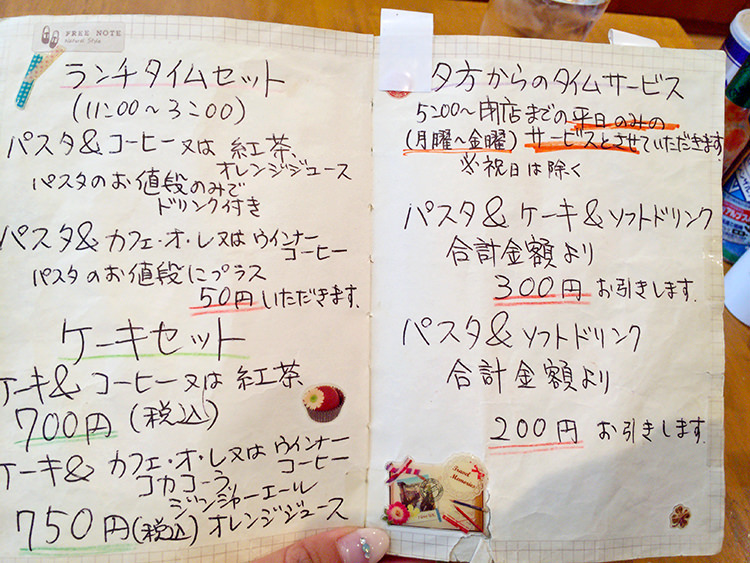 FREE NOTE
Natural Style
ランチタイムセット
(11:00~3:00)
パスタ&コーヒー又は紅茶、
オレンジジュース
パスタのお値段のみで
ドリンク付き
パスタ&カフェ・オ・レ又はウインナー
コーヒー
パスタのお値段にプラス
50円いただきます。
ケーキセット
ケーキ&コーヒー又は紅茶
700円(税込)
ケーキ&カフェ・オ・レ又はウインナー
コーヒー
コカコーラ、
ジンジャーエール
750円(税込)オレンジジュース
夕方からのタイムサービス
5:00~閉店までの平日のみの
(月曜~金曜)サービスとさせていただきます。
※祝日は除く
パスタ&ケーキ&ソフトドリンク
合計金額より
300円お引きします。
パスタ&ソフトドリンク
合計金額より
200円お引きします。
Travel
Memories